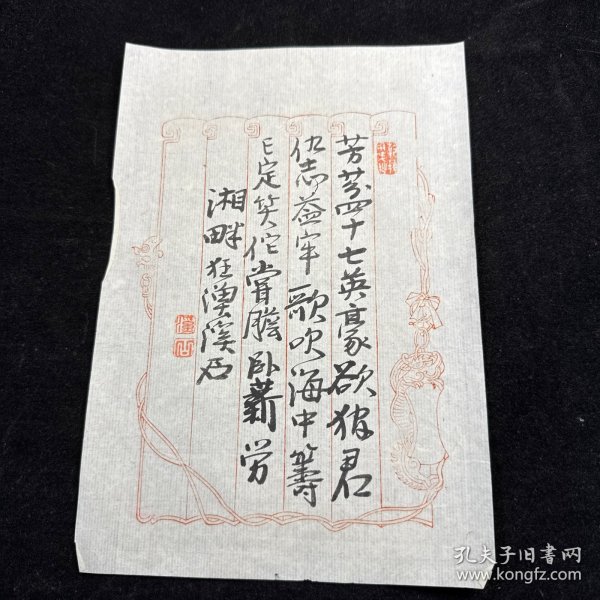 芳芬四十七英豪欲獲君
仇志益牢歌吹海中籌
已定笑佗嘗膽卧薪労
湘畔狂漁溪石
孔夫子旧书网
www.kongfz.com